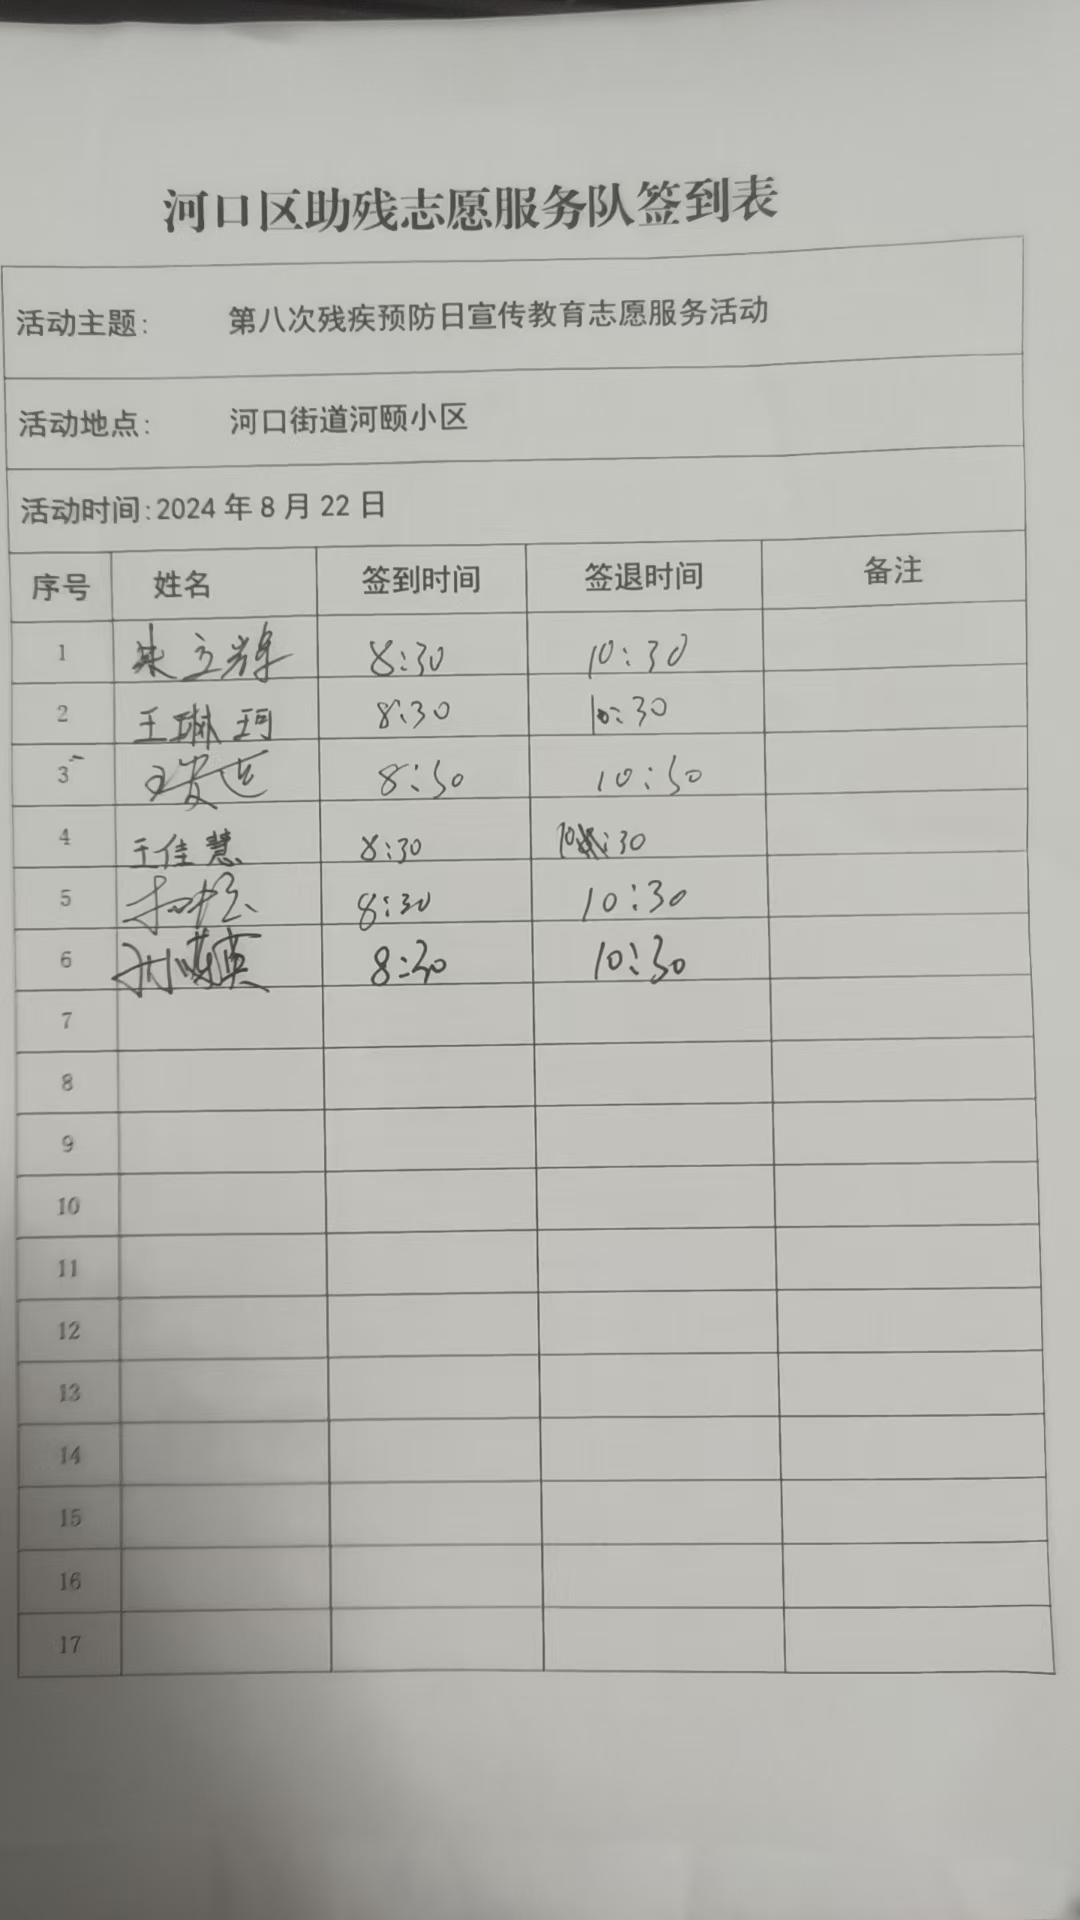 河口区助残志愿服务队签到表
活动主题: 第八次残疾预防日宣传教育志愿服务活动
活动地点: 河口街道河颐小区
活动时间:2024年8月22日
序号 姓名 签到时间 签退时间 备注
1 朱立辉 8:30 10:30
2 王琳珂 8:30 10:30
3 8:30 10:30
4 王佳慧 8:30 10:30
5 8:30 10:30
6 8:30 10:30
7
8
9
10
11
12
13
14
15
16
17